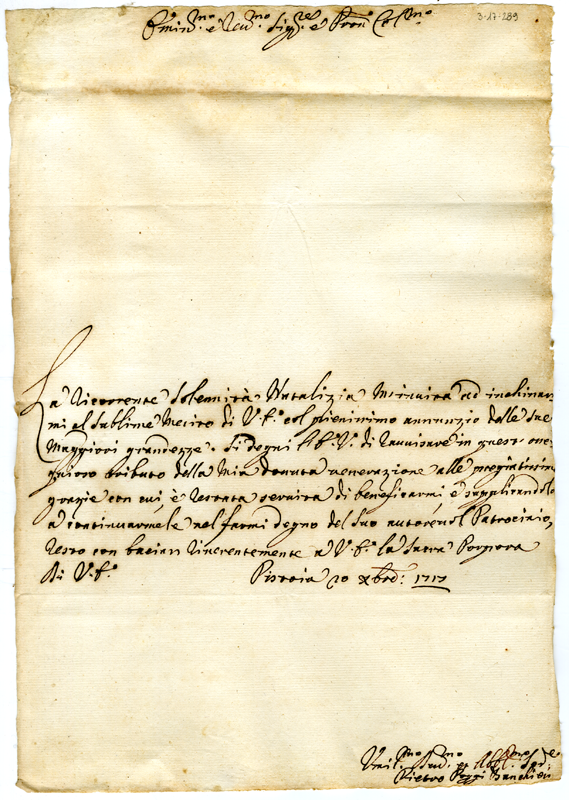 Em.mo e Rev.mo Sig.re e Pron Col.mo
3-17-289
La Ricorrente Solennità Natalizia m'invita ad inchinar
mi al sublime Merito di V. E.a col pienissimo annunzio delle sue
Maggiori grandezze. Si degni l'E. V. di ravvisare in questo osse
quioso tributo della Mia dovuta venerazione alle pregiatissime
grazie con cui è restata servita di beneficarmi, e supplicandola
a continuarmele nel farmi degno del suo autorevol Patrocinio,
resto con baciar riverentemente a V. E.a la Sacra Porpora
Di V. E.a Pistoia 20 Xbre: 1717
Umil.mo Dev.mo et Obbl.mo Ser.e
Pietro Banchieri